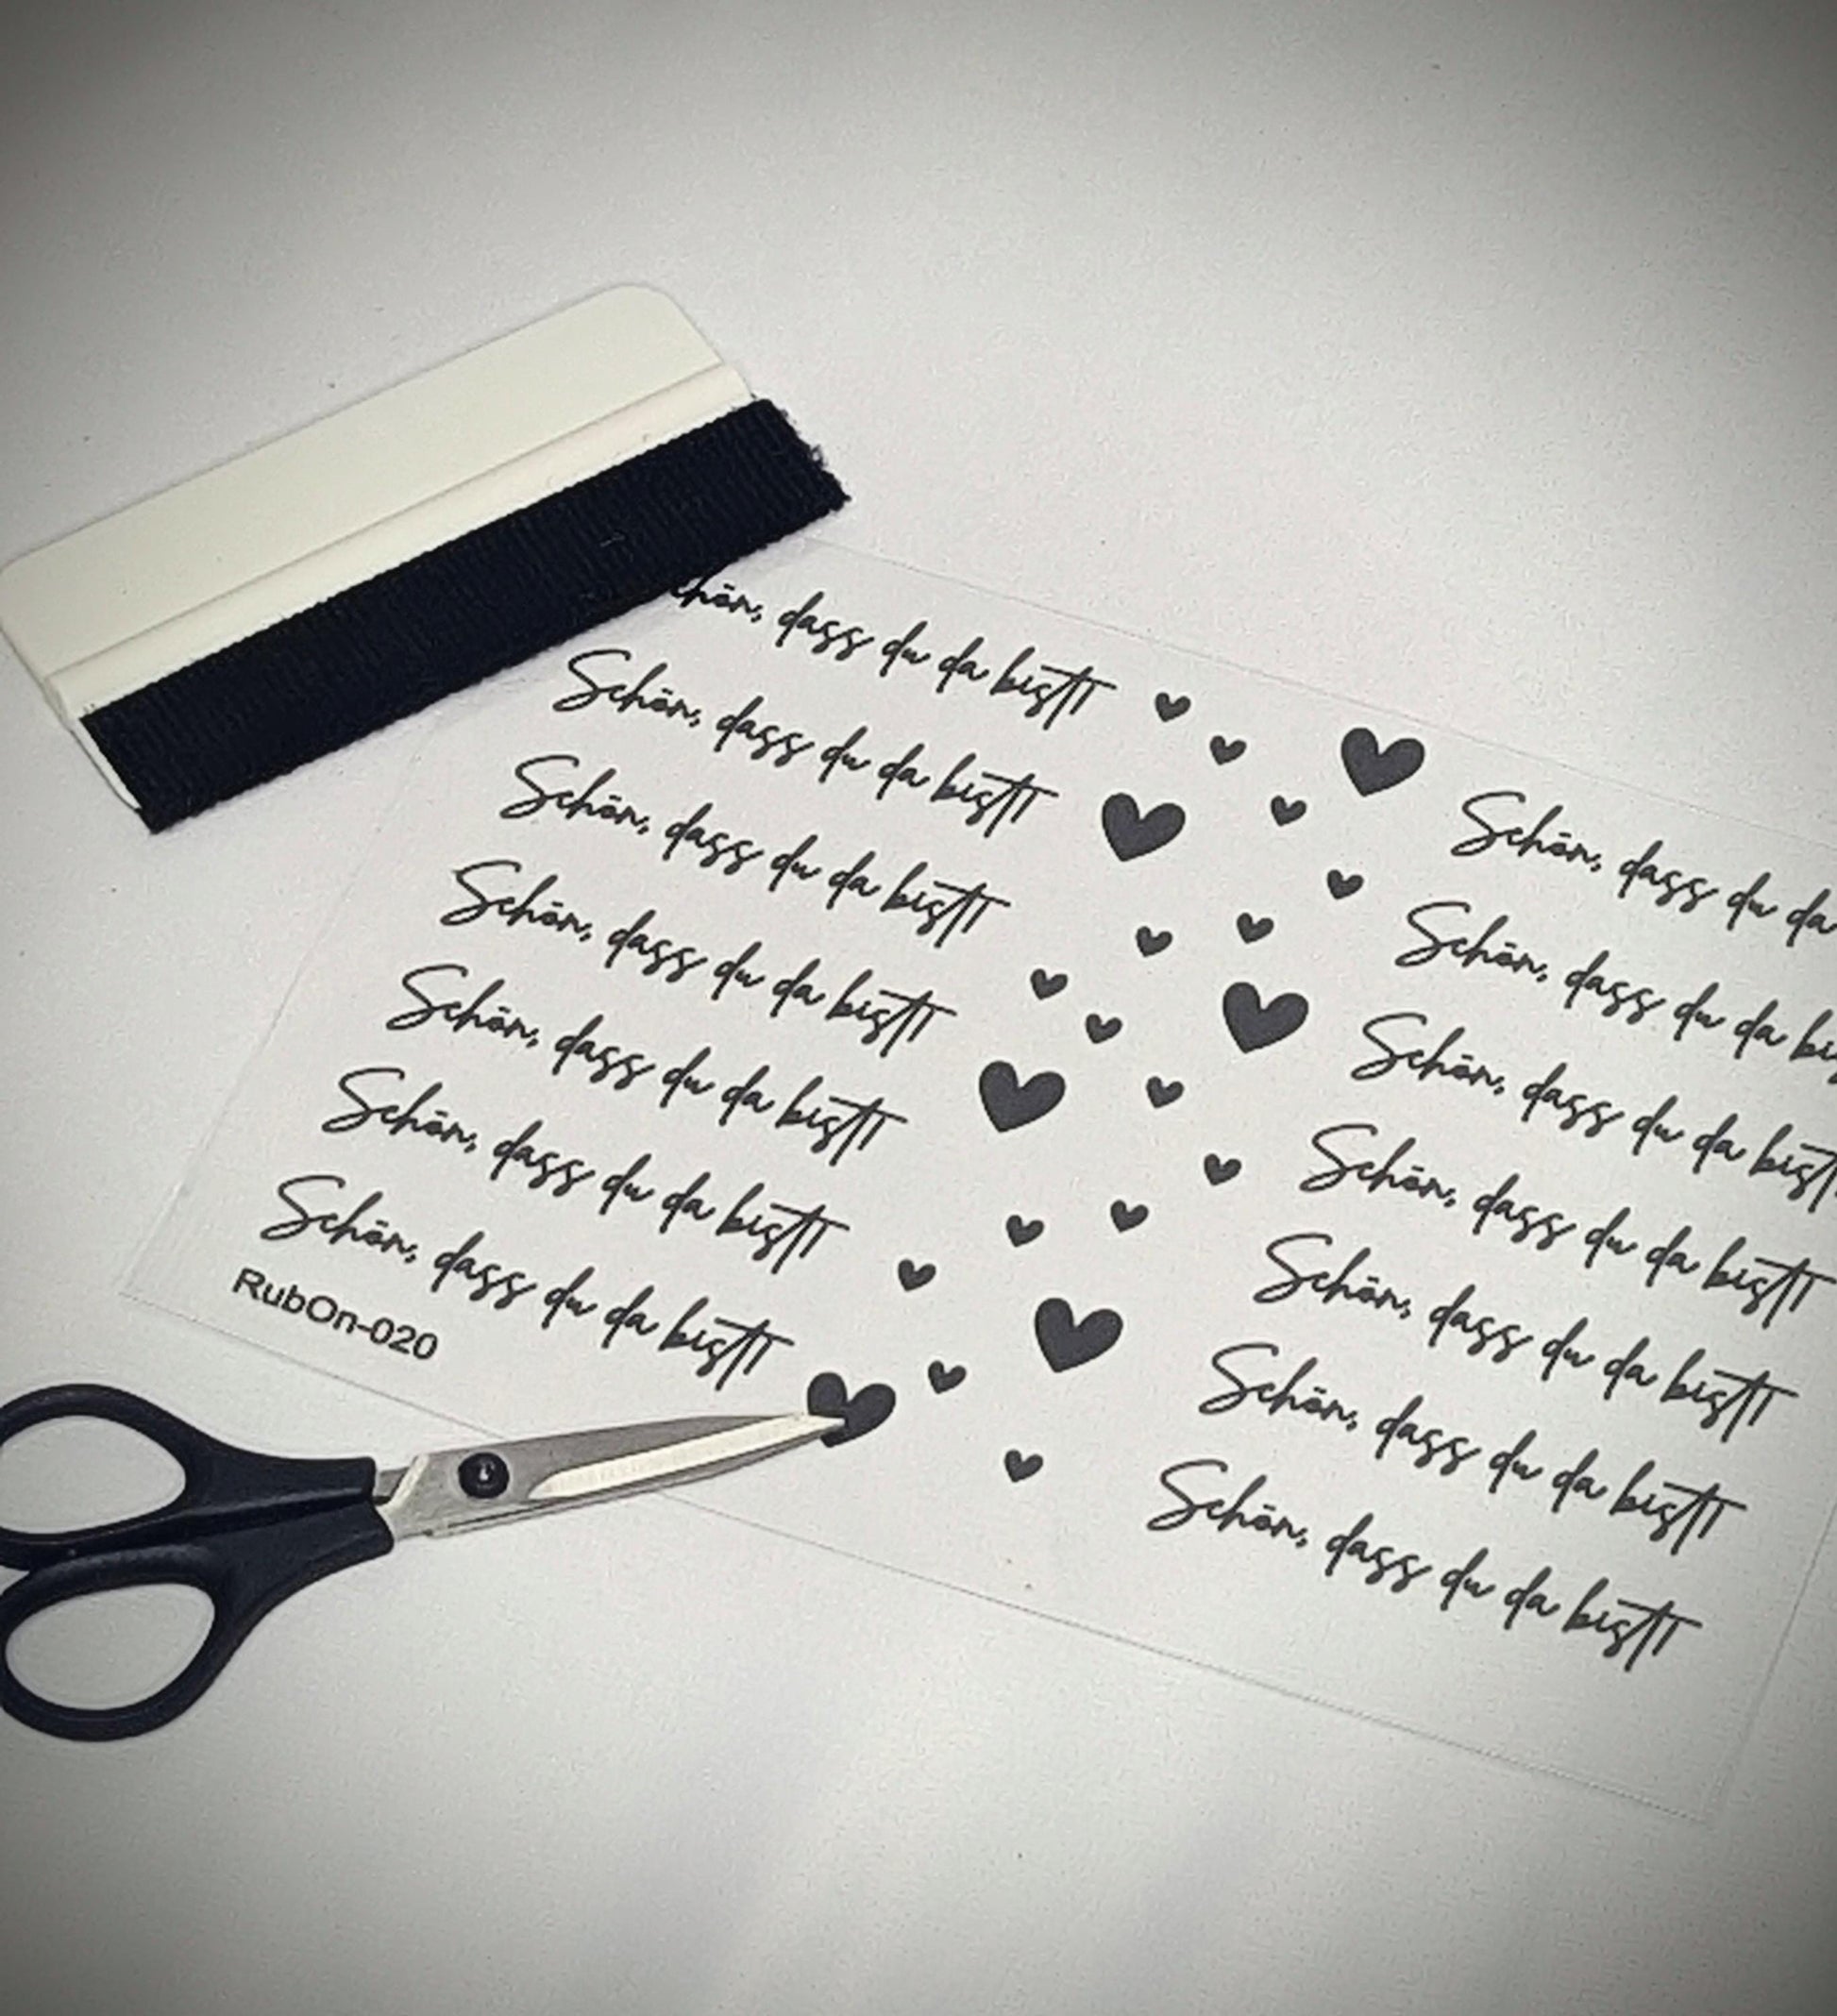 chön, dass du da bist
Schön, dass du da bist
Schön, dass du da bist
Schön, dass du da bist
Schön, dass du da bist
Schön, dass du da bist
Schön, dass du da bist
RubOn-020
Schön, dass du da
Schön, dass du da bis
Schön, dass du da bist
Schön, dass du da bist
Schön, dass du da bist
Schön, dass du da bist
Schön, dass du da bist